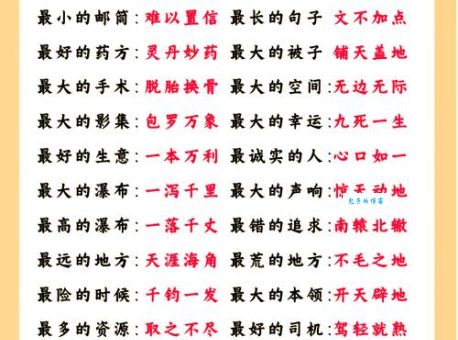 最小的邮筒:难以置信 最长的句子 文不加点
最好的药方:灵丹妙药 最大的被子 铺天盖地
最大的手术:脱胎换骨 最大的空间:无边无际
最大的影集:包罗万象 最大的幸运:九死一生
最好的生意:一本万利 最诚实的人:心口如一
最大的瀑布:一泻千里 最大的声响:惊天动地
包子的博客
最高的瀑布:一落千丈 最错的追求:南辕北辙
最远的地方:天涯海角 最荒的地方:不毛之地
最险的时候:千钧一发 最大的本领:开天辟地
最多的资源:取之不尽 最好的司机:驾轻就熟